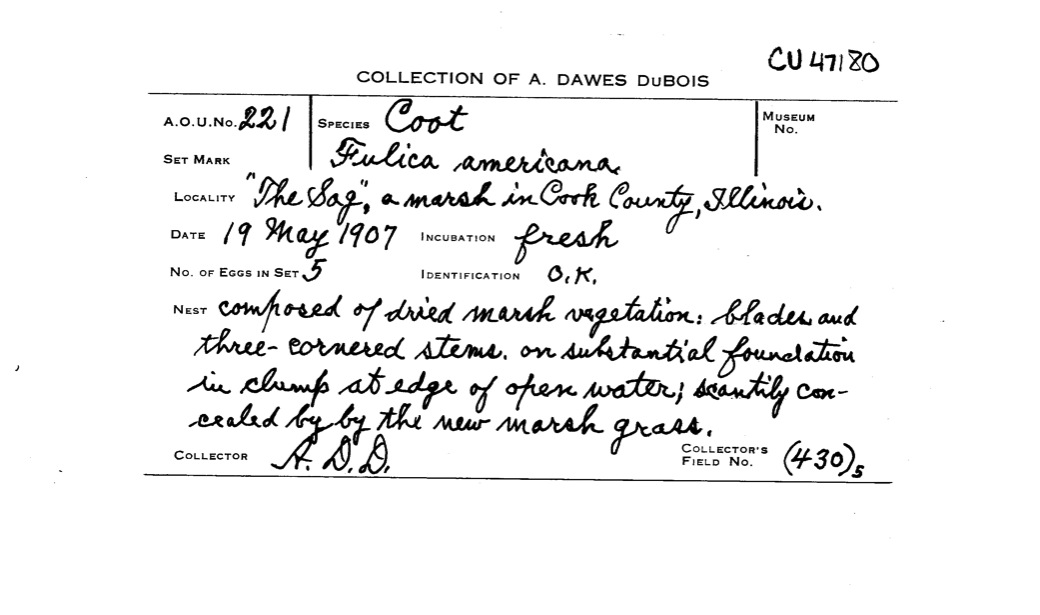 CU 47180
COLLECTION OF A. DAWES DuBOIS
A.O.U. No. 221 SPECIES Coot MUSEUM No.
SET MARK Fulica americana.
LOCALITY "The Sag", a marsh in Cook County, Illinois.
DATE 19 May 1907 INCUBATION fresh
NO. OF EGGS IN SET 5 IDENTIFICATION O.K.
NEST composed of dried marsh vegetation: blades and
three-cornered stems. on substantial foundation
in clump at edge of open water; scantily con-
cealed by by the new marsh grass.
COLLECTOR A. D. D. COLLECTOR'S FIELD NO. (430)5